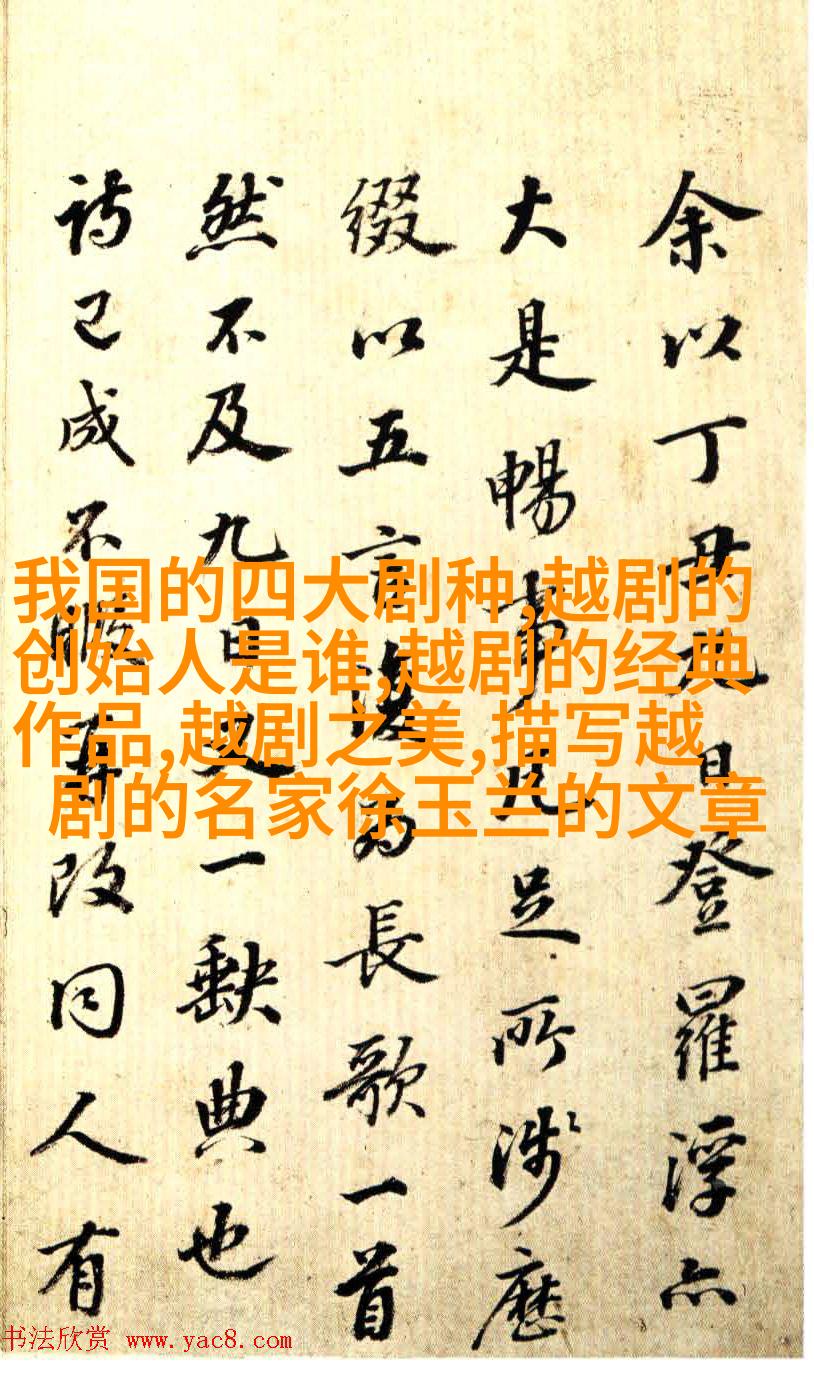 余以丁丑九日登羅浮亦
大是暢事凡足所涉歷
綴以五言復為長歌一首
然不及九日又一缺典也
詩已成不暇再改同人有
我国的四大剧种,越剧的
创始人是谁,越剧的经典
作品,越剧之美,描写越
剧的名家徐玉兰的文章
书法欣赏 www.yac8.com